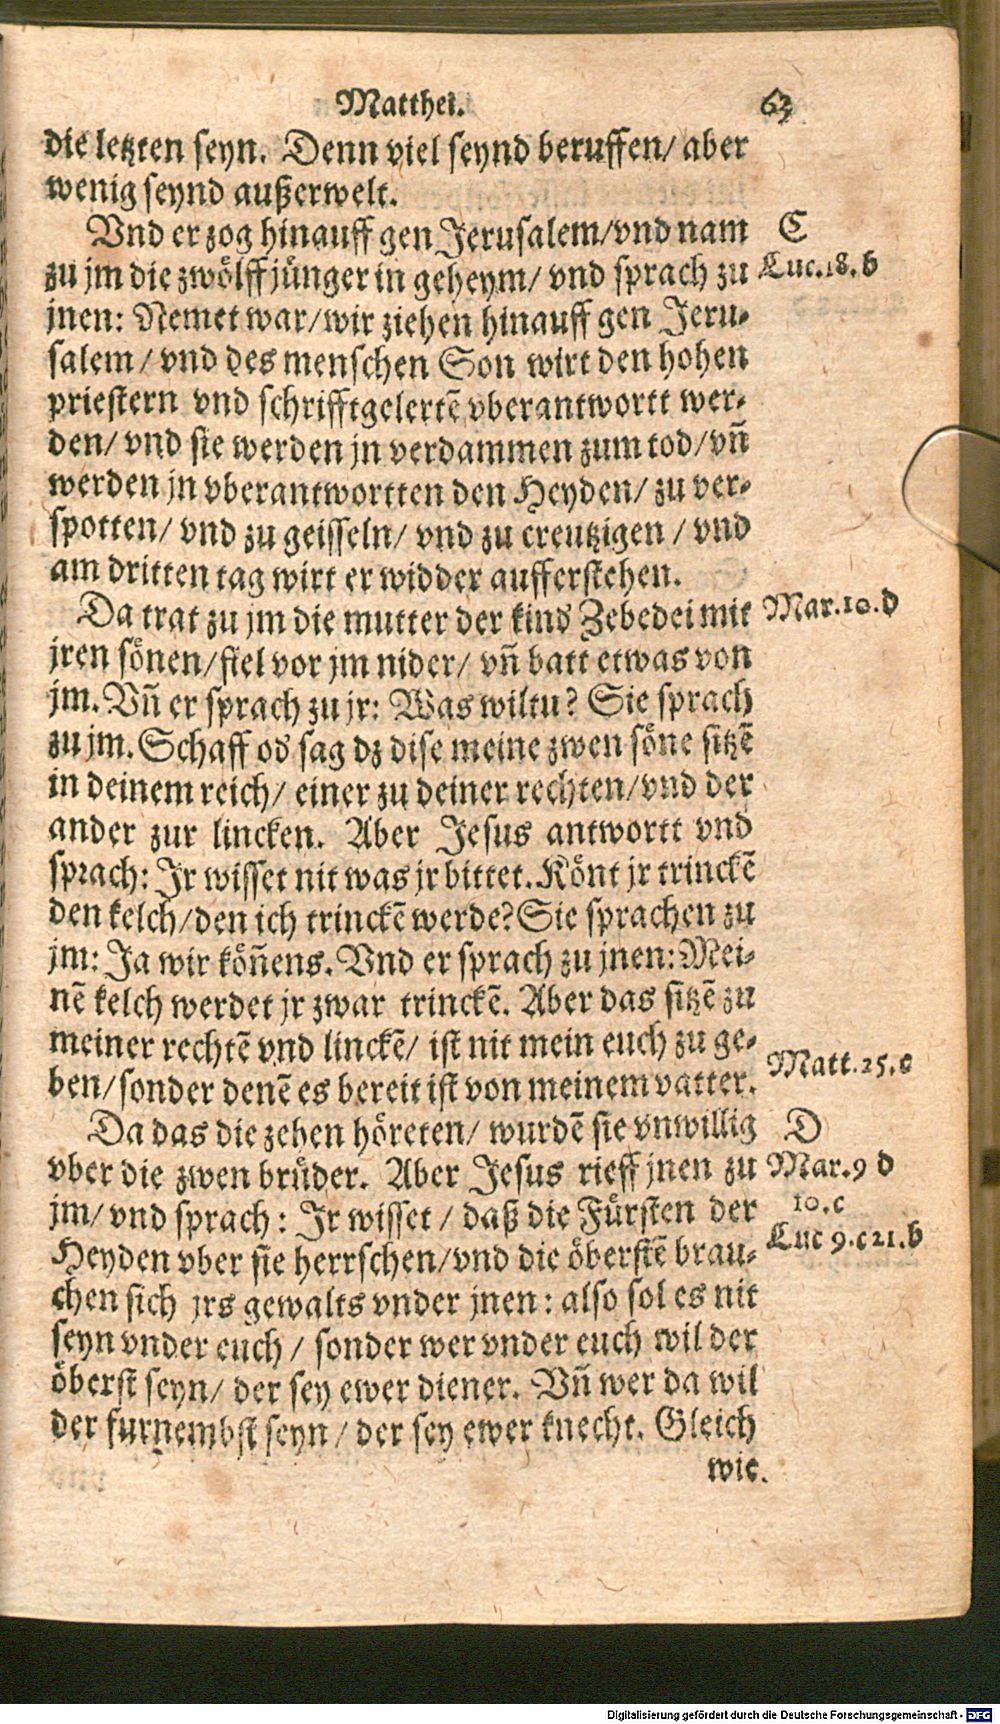 Matthei. 63
die letzten seyn. Denn viel seynd beruffen/ aber
wenig seynd außerwelt.
Vnd er zog hinauff gen Jerusalem/vnd nam
C
zu jm die zwölff jünger in geheym/ vnd sprach zu
Luc.18.b
jnen: Nemet war/wir ziehen hinauff gen Jeru-
salem/ vnd des menschen Son wirt den hohen
priestern vnd schrifftgelertē vberantwortt wer-
den/ vnd sie werden jn verdammen zum tod/vñ
werden jn vberantwortten den Heyden/ zu ver-
spotten/ vnd zu geisseln/ vnd zu creutzigen / vnd
am dritten tag wirt er widder aufferstehen.
Da trat zu jm die mutter der kind Zebedei mit
Mar.10.d
jren sönen/fiel vor jm nider/ vñ batt etwas von
jm. Vñ er sprach zu jr: Was wiltu? Sie sprach
zu jm. Schaff od sag dz dise meine zwen söne sitzē
in deinem reich/ einer zu deiner rechten/vnd der
ander zur lincken. Aber Jesus antwortt vnd
sprach: Jr wisset nit was jr bittet. Könt jr trinckē
den kelch/den ich trinckē werde? Sie sprachen zu
jm: Ja wir köñens. Vnd er sprach zu jnen: Mei-
nē kelch werdet jr zwar trinckē. Aber das sitzē zu
meiner rechtē vnd linckē/ ist nit mein euch zu ge-
ben/sonder denē es bereit ist von meinem vatter.
Matt.25.c
Da das die zehen höreten/ wurdē sie vnwillig
D
vber die zwen brüder. Aber Jesus rieff jnen zu
Mar.9 d
jm/ vnd sprach: Jr wisset / daß die Fürsten der
10.c
Heyden vber sie herrschen/vnd die öberstē brau-
Luc 9.c 21.b
chen sich jrs gewalts vnder jnen: also sol es nit
seyn vnder euch / sonder wer vnder euch wil der
öberst seyn/ der sey ewer diener. Vñ wer da wil
der furnembst seyn / der sey ewer knecht. Gleich
wie.
Digitalisierung gefördert durch die Deutsche Forschungsgemeinschaft - DFG